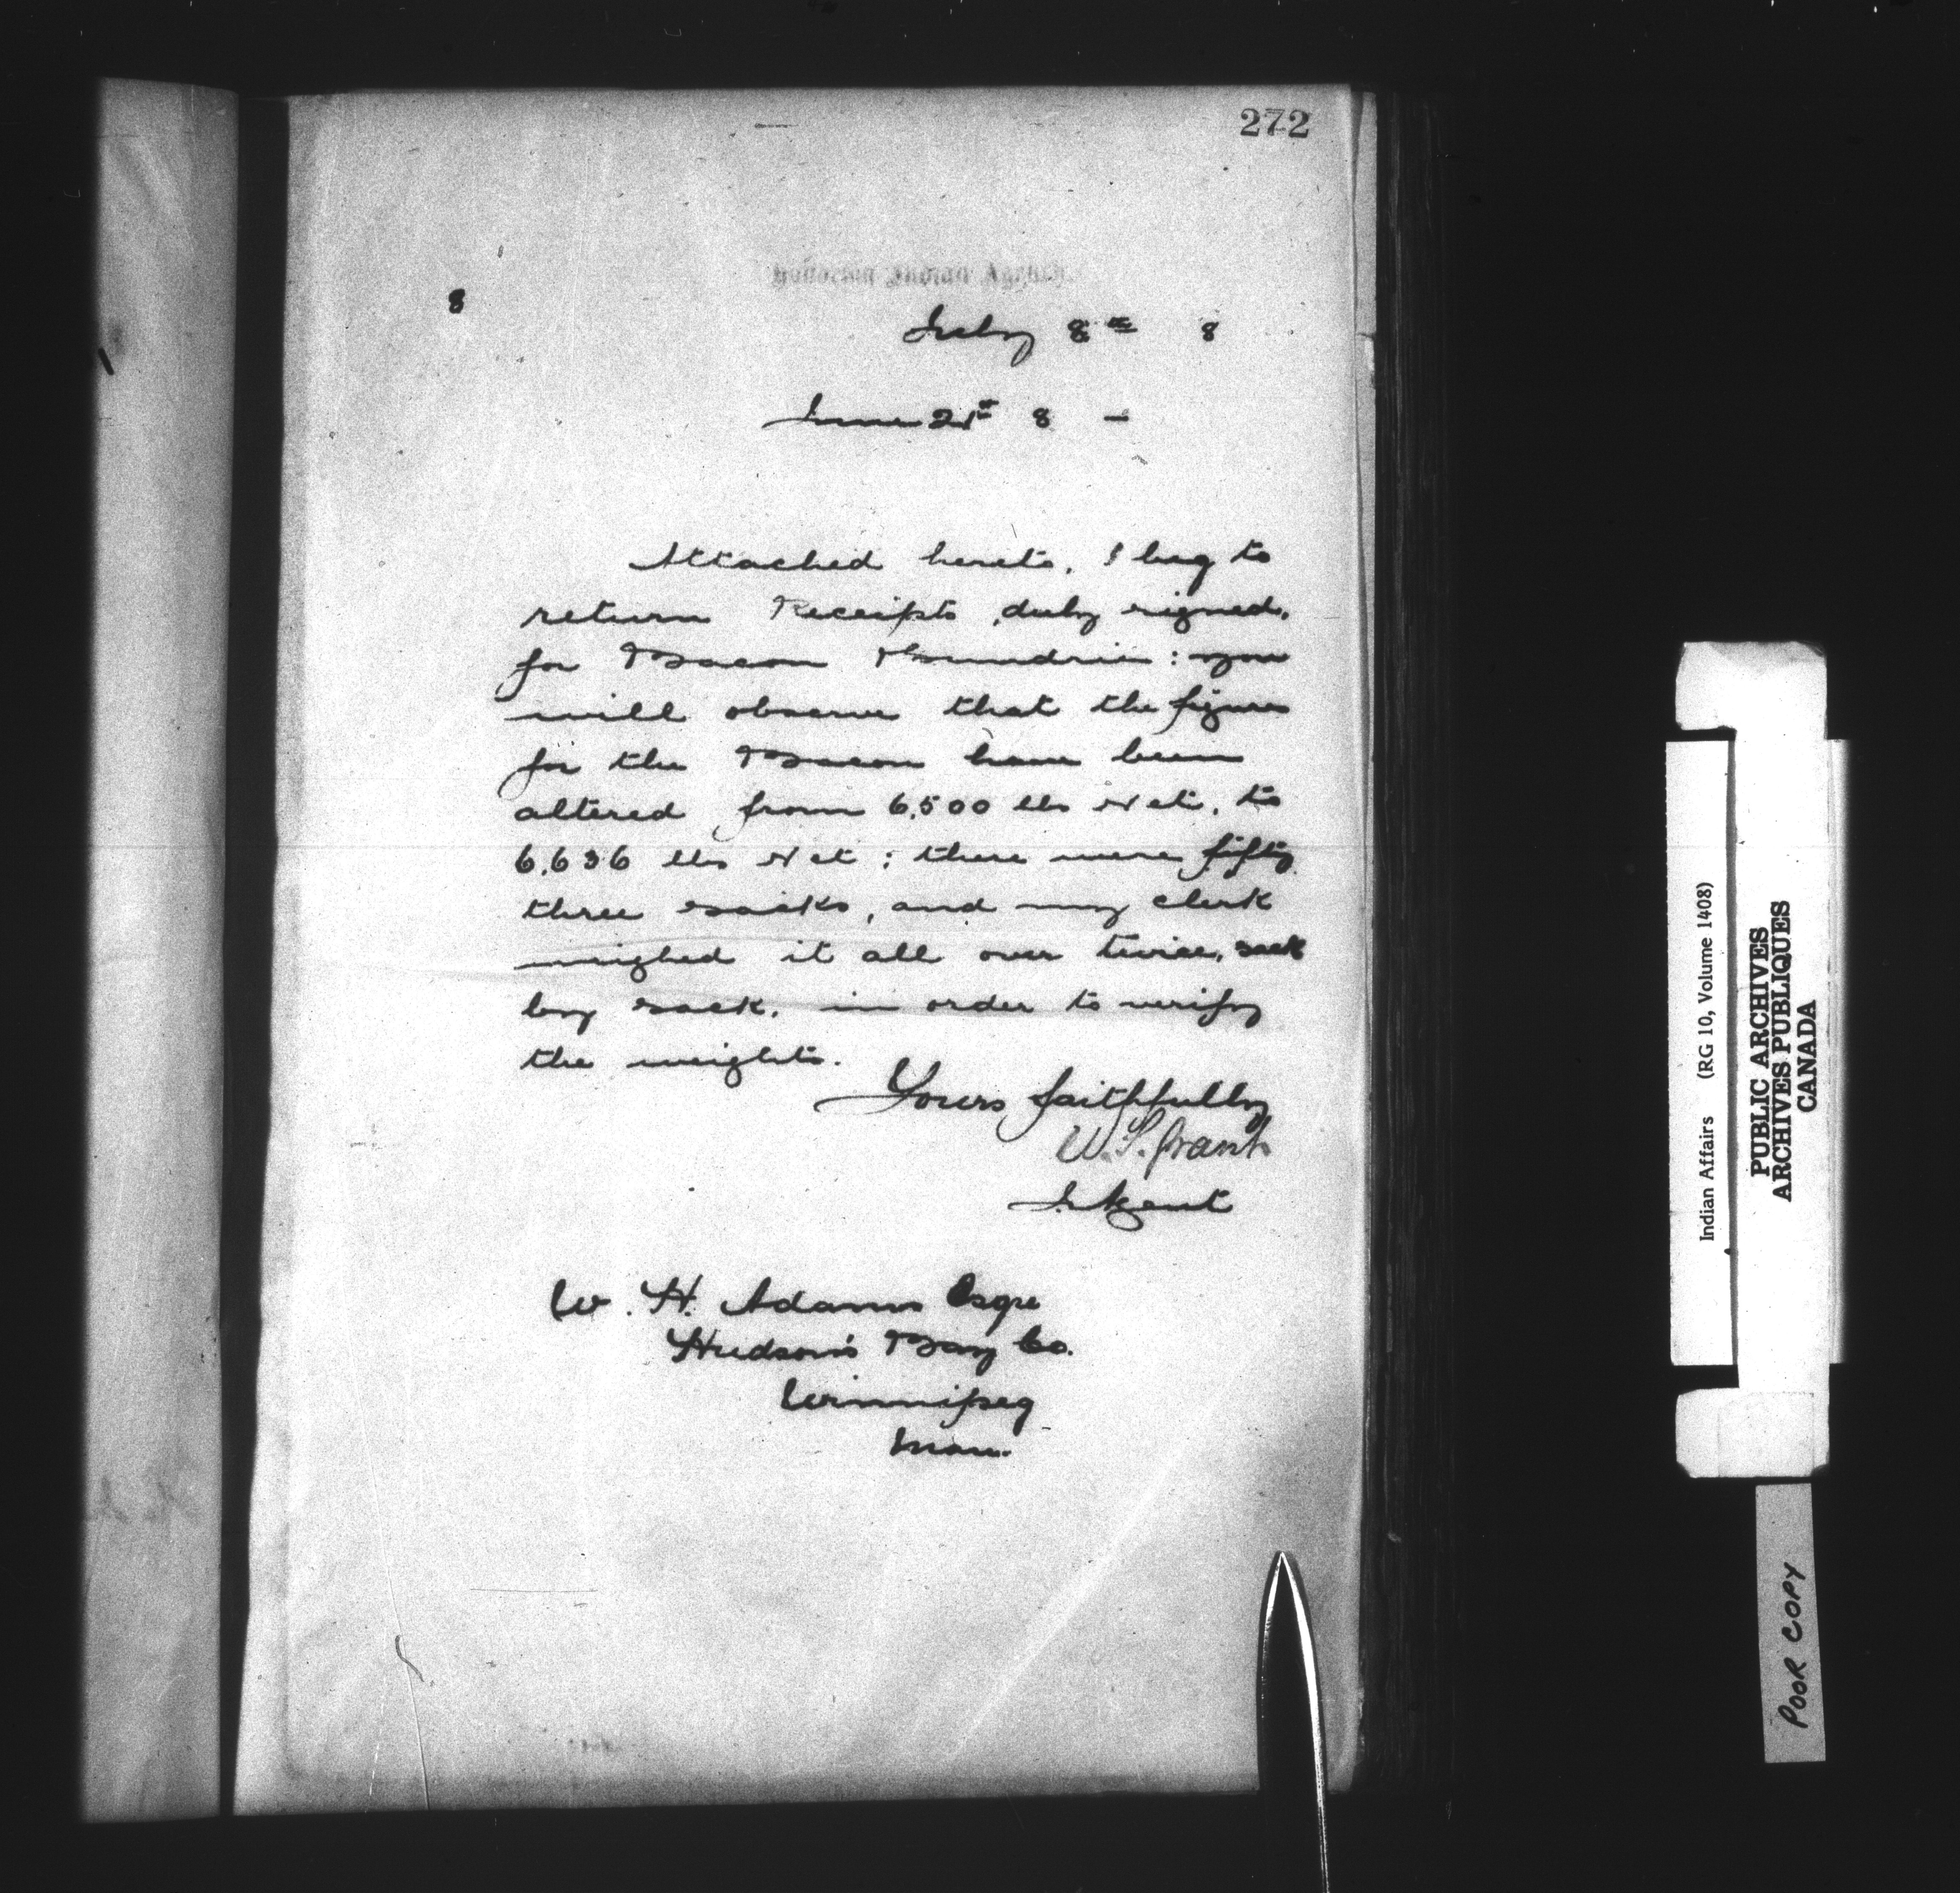 272
Indian Agency.
8
July 8th 8
June 21st 8 —
Attached hereto, I beg to
return Receipts, duly signed,
for Bacon & Sundries: you
will observe that the figures
for the Bacon have been
altered from 6,500 lbs Net, to
6,636 lbs Net; there were fifty
three sacks, and my clerk
weighed it all over twice, sack
by sack, in order to verify
the weights.
Yours faithfully
W. S. Grant
I. Agent
W. H. Adams Esqre
Hudson's Bay Co.
Winnipeg
Man.
Indian Affairs (RG 10, Volume 1408)
PUBLIC ARCHIVES
ARCHIVES PUBLIQUES
CANADA
POOR COPY